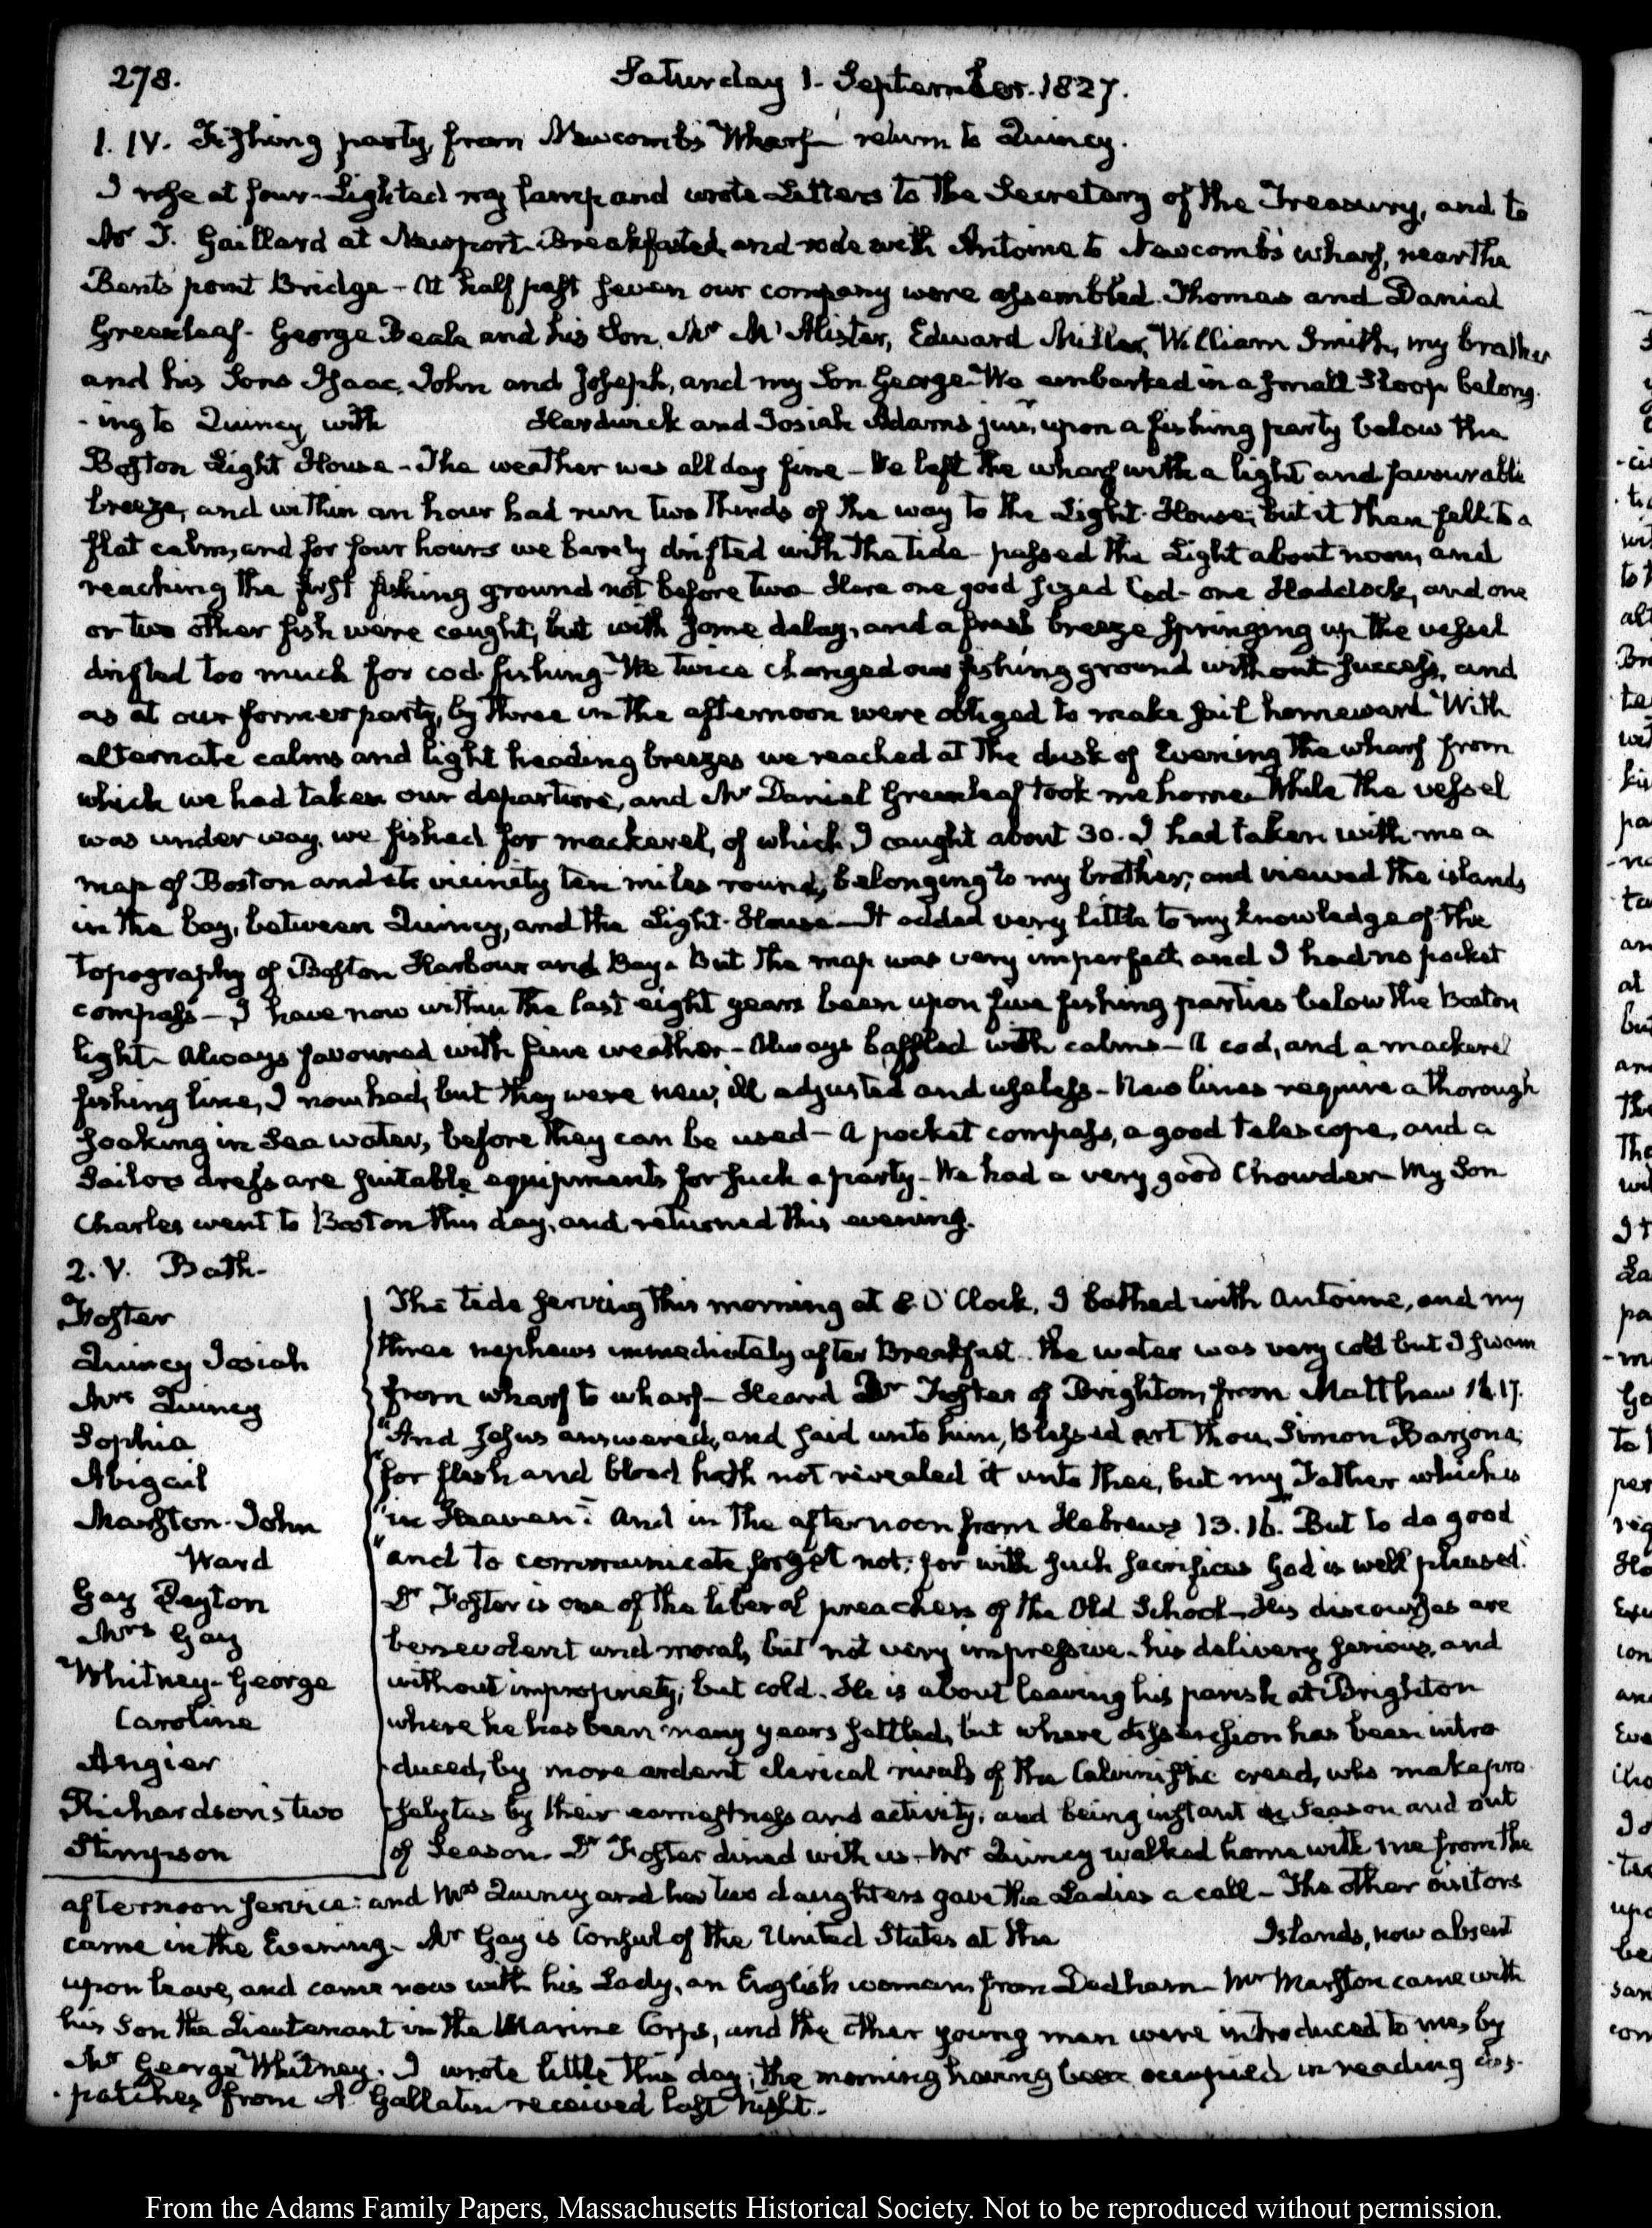 278.
Saturday 1. September. 1827.
1. IV. Fishing party, from Newcomb's Wharf return to Quincy.
I rose at four. Lighted my lamp and wrote Letters to the Secretary of the Treasury, and to
Mr J. Gaillard at Newport. Breakfasted, and rode with Antoine to Newcomb's wharf, near the
Bent's point Bridge – At half past seven our company were assembled. Thomas and Daniel
Greenleaf. George Beale and his Son, Mr McAlister, Edward Miller, William Smith, my brother
and his Sons Isaac, John and Joseph, and my Son George. We embarked in a small Sloop belong-
-ing to Quincy, with Hardwick and Josiah Adams junr, upon a fishing party below the
Boston Light House – The weather was all day fine – We left the wharf with a light and favourable
breeze, and within an hour had run two thirds of the way to the Light-House; but it then fell to a
flat calm, and for four hours we barely drifted with the tide – passed the Light about noon, and
reaching the first fishing ground not before two – Here one good sized Cod – one Haddock, and one
or two other fish were caught; but with some delay, and a fresh breeze springing up the vessel
drifted too much for cod-fishing – We twice changed our fishing ground without success, and
as at our former party, by three in the afternoon were obliged to make sail homeward. With
alternate calms and light heading breezes we reached at the dusk of Evening the wharf from
which we had taken our departure, and Mr Daniel Greenleaf took me home. While the vessel
was under way, we fished for mackerel, of which I caught about 30. I had taken with me a
map of Boston and its vicinity ten miles round, belonging to my brother; and viewed the islands
in the bay, between Quincy, and the Light-House – It added very little to my knowledge of the
topography of Boston Harbour and Bay. But the map was very imperfect, and I had no pocket
compass – I have now within the last eight years been upon five fishing parties below the Boston
light – Always favoured with fine weather – Always baffled with calms – A cod, and a mackerel
fishing line, I now had, but they were new, ill adjusted and useless – New lines require a thorough
soaking in Sea water, before they can be used – A pocket compass, a good telescope, and a
Sailor's dress are suitable equipments for such a party – We had a very good Chowder – My Son
Charles went to Boston this day, and returned this evening.
2. V. Bath.
Foster
Quincy Josiah
Mrs Quincy
Sophia
Abigail
Marston. John
Ward
Gay Payton
Mrs Gay
Whitney – George
Caroline
Angier
Richardsons two
Stimpson
The tide serving this morning at 8 O'Clock, I bathed with Antoine, and my
three nephews immediately after Breakfast. The water was very cold but I swam
from wharf to wharf – Heard Dr Foster of Brighton, from Matthew 16.17.
"And Jesus answered, and said unto him, Blessed art thou, Simon Barjona;
"for flesh and blood hath not revealed it unto thee, but my Father which is
"in Heaven": And in the afternoon from Hebrews 13.16. "But to do good
"and to communicate forget not; for with such sacrifices God is well pleased."
Dr Foster is one of the liberal preachers of the Old School – His discourses are
benevolent and moral, but not very impressive – his delivery serious, and
without impropriety; but cold. He is about leaving his parish at Brighton
where he has been many years settled, but where dissension has been intro-
-duced, by more ardent clerical rivals of the Calvinistic creed, who make pro-
-selytes by their earnestness and activity; and being instant in Season and out
of Season. Dr Foster dined with us – Mr Quincy walked home with me from the
afternoon service: and Mrs Quincy and her two daughters gave the Ladies a call – The other visitors
came in the Evening. Mr Gay is Consul of the United States at the Islands, now absent
upon leave, and came now with his Lady, an English woman, from Dedham – Mr Marston came with
his Son the Lieutenant in the Marine Corps, and the other young men were introduced to me, by
Mr George Whitney. I wrote little this day; the morning having been occupied in reading dis-
-patches from A. Gallatin received last Night.
From the Adams Family Papers, Massachusetts Historical Society. Not to be reproduced without permission.